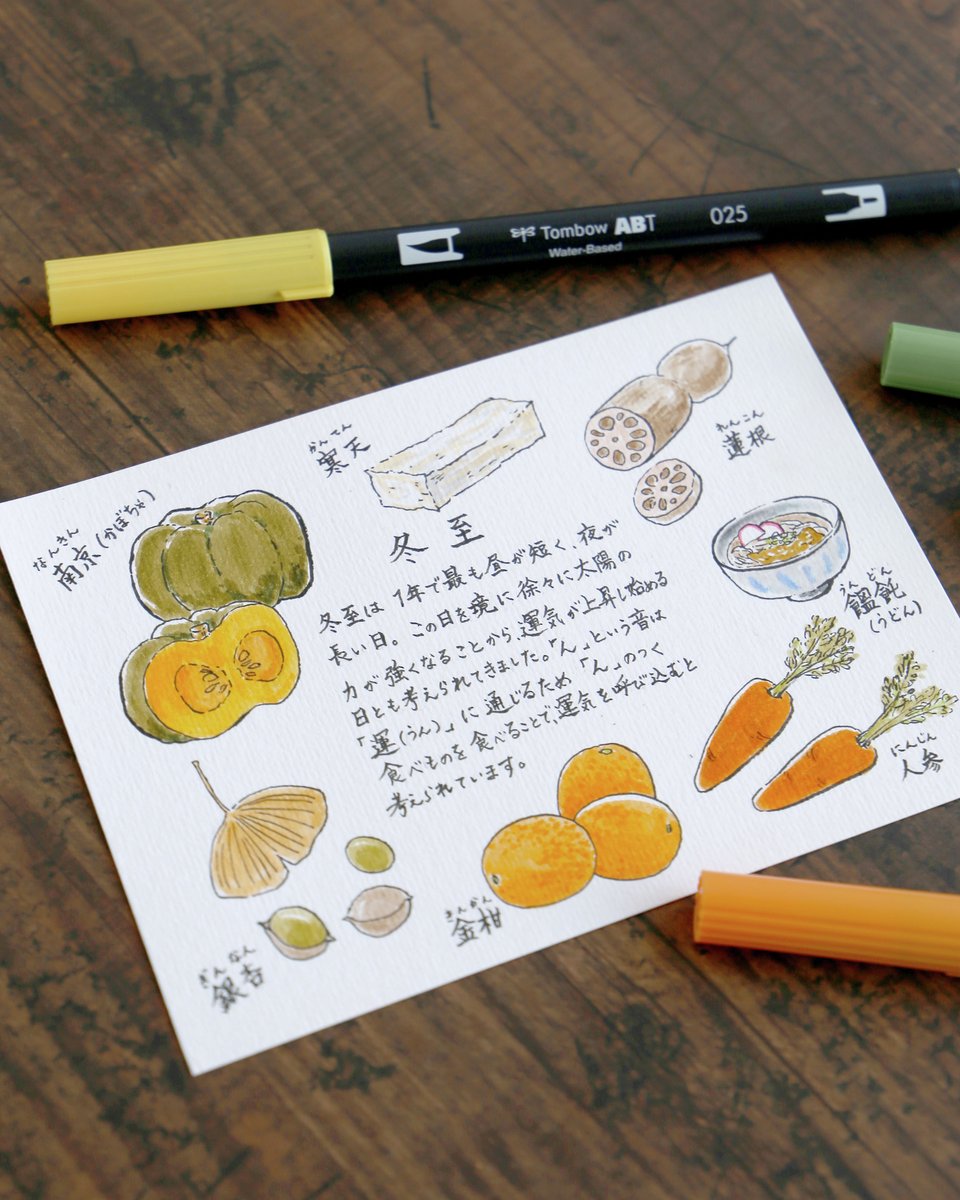 Tombow ABT 025
Water-Based
かんてん
寒天
れんこん
蓮根
なんきん
南京(かぼちゃ)
冬至
冬至は 1年で最も昼が短く、夜が
長い日。この日を境に徐々に太陽の
力が強くなることから、運気が上昇し始める
日とも考えられてきました。「ん」という音は
「運(うん)」に通じるため「ん」のつく
食べものを食べることで、運気を呼び込むと
考えられています。
うんどん
饂飩
(うどん)
にんじん
人参
きんかん
金柑
ぎんなん
銀杏